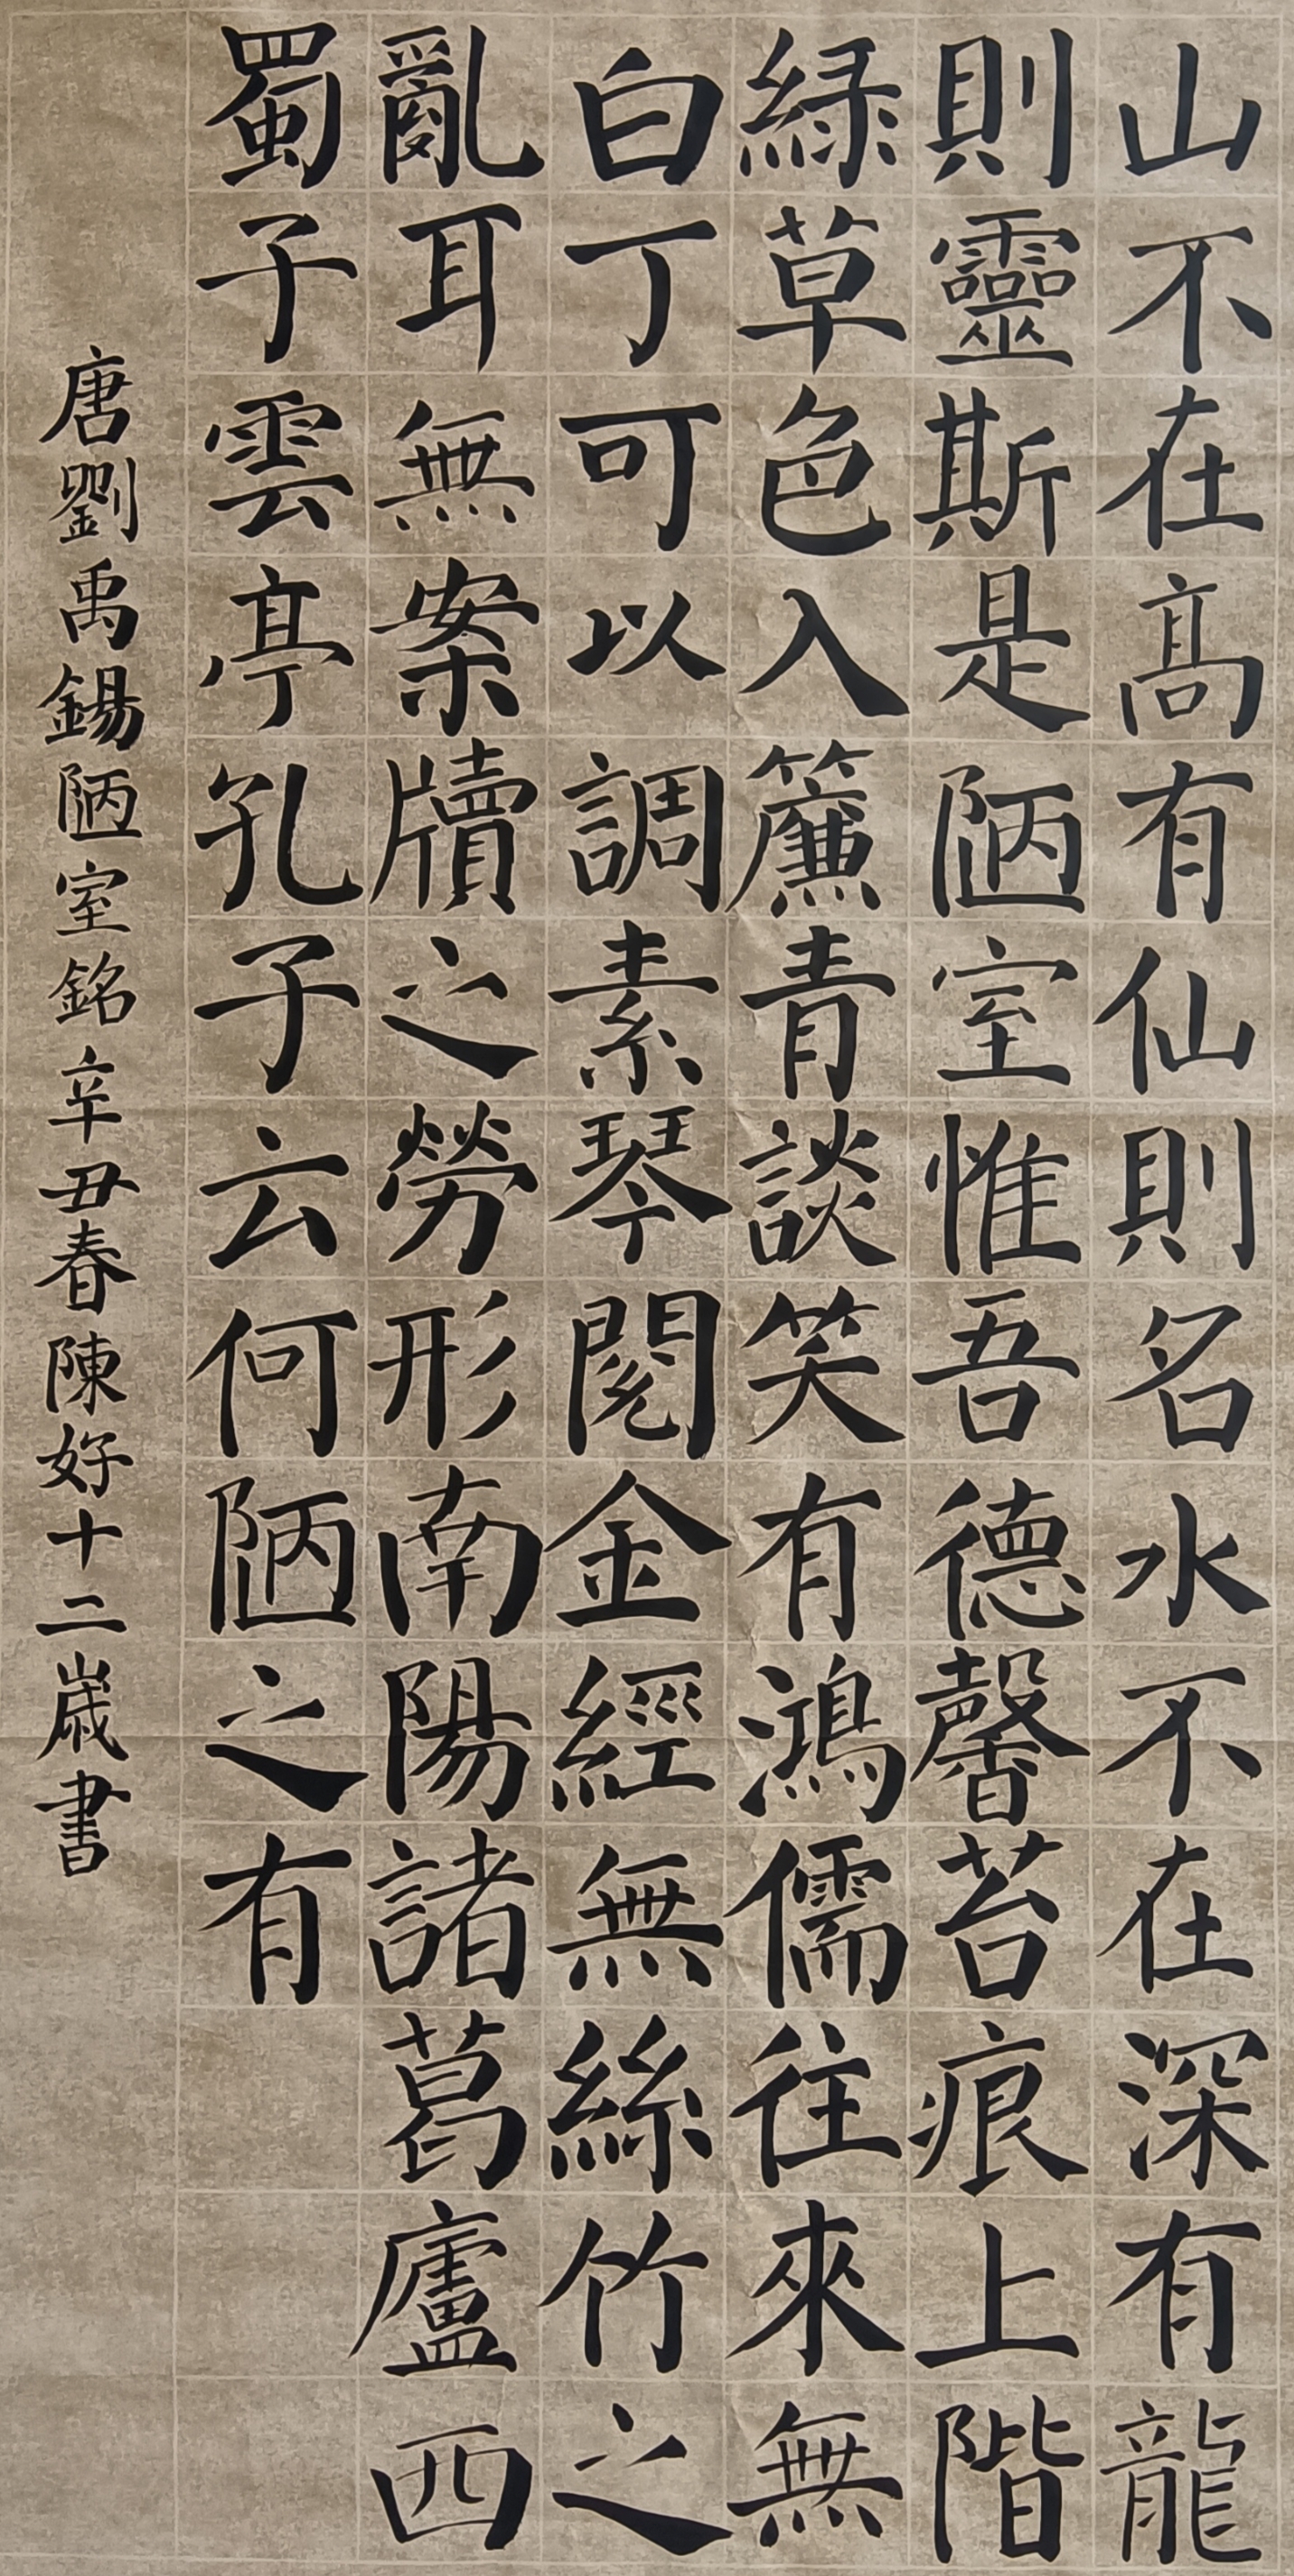 山不在高有仙則名水不在深有龍
則靈斯是陋室惟吾德馨苔痕上階
緑草色入簾青談笑有鴻儒往來無
白丁可以調素琴閱金經無絲竹之
亂耳無案牘之勞形南陽諸葛廬西
蜀子雲亭孔子云何陋之有
唐劉禹錫陋室銘辛丑春陳好十二歲書